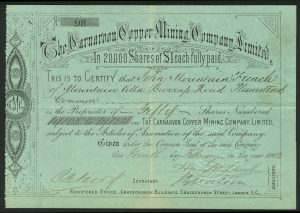 98
The Carnarvon Copper Mining Company, Limited.
In 20000 Shares of £1 each fully paid.
THIS IS TO CERTIFY that John Mountain French
of Mountain Villa Road Plumstead
Common
is the Proprietor of Fifty Shares Numbered
in THE CARNARVON COPPER MINING COMPANY, LIMITED,
subject to the Articles of Association of the said Company.
Given under the Common Seal of the said Company
this day of February in the year
DIRECTORS
SECRETARY
REGISTERED OFFICE, GRACECHURCH BUILDINGS, GRACECHURCH STREET, LONDON, E.C.